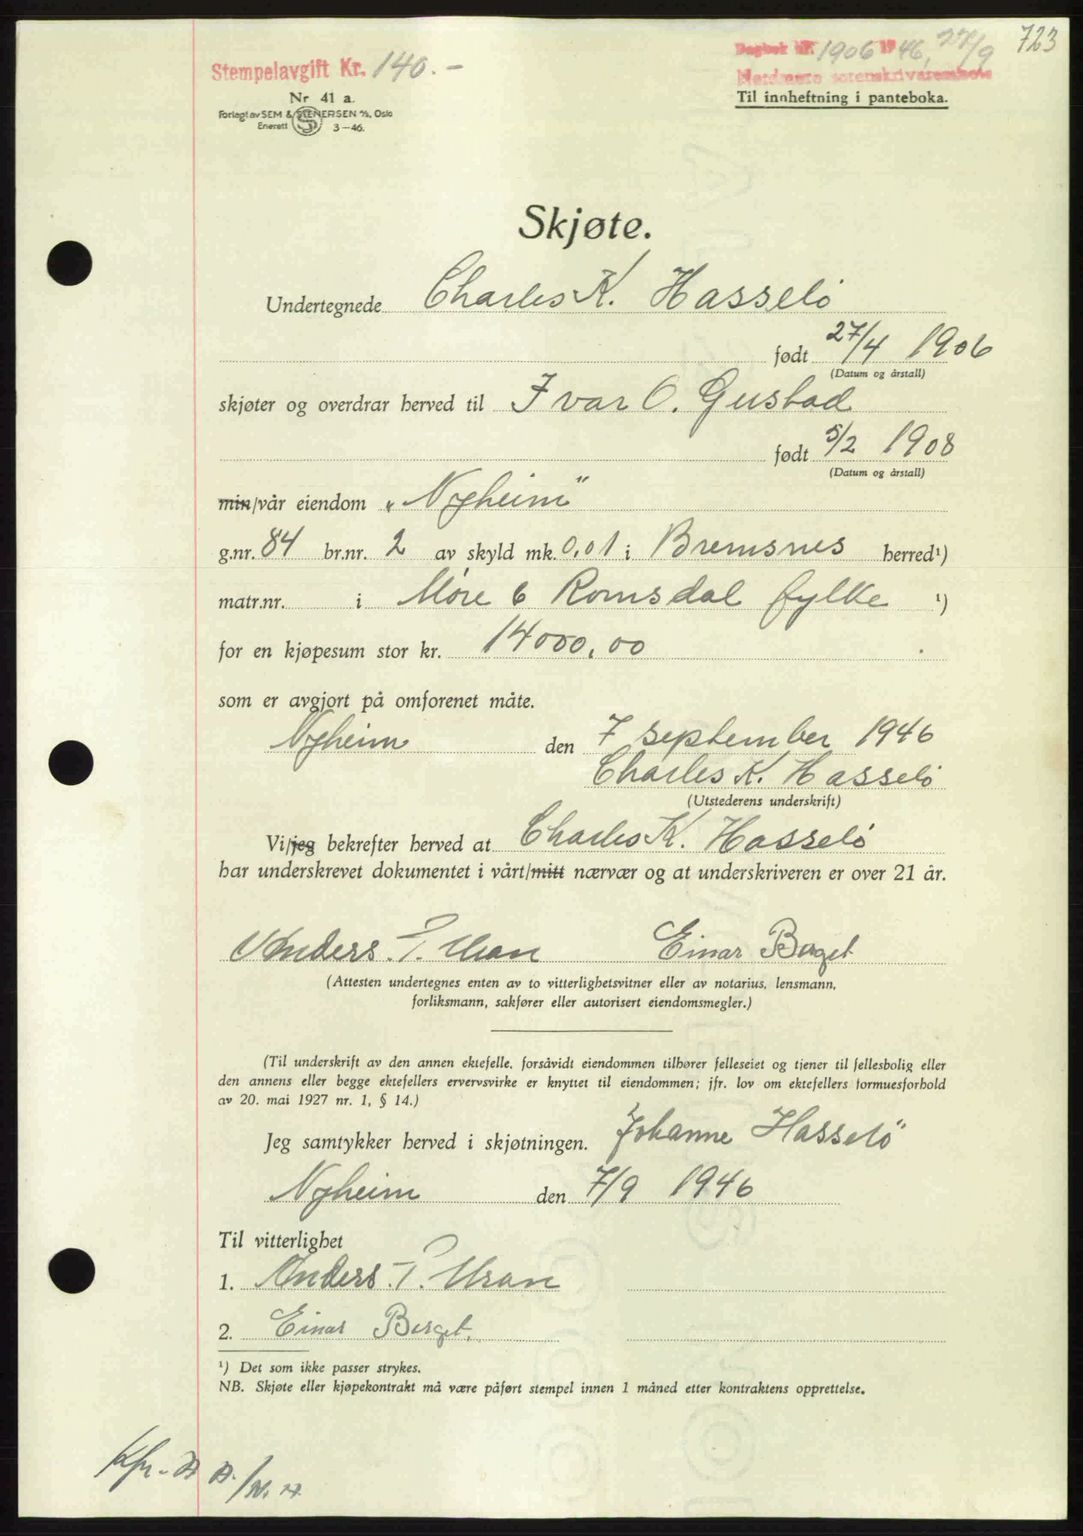 723
Dagbok nr. 1906 1946, 27/9
Stempelavgift Kr. 140.-
Nordmøre sorenskriverembete
Nr 41 a.
Til innheftning i panteboka.
Forlagt av SEM & STENERSEN A/S, Oslo
Enerett 3-46.
Skjøte.
Undertegnede Charles K. Hasselö
født 27/4 1906
(Datum og årstall)
skjøter og overdrar herved til Ivar O. Gustad
født 5/2 1908
(Datum og årstall)
min/vår eiendom „Nyheim"
g.nr. 84 br.nr. 2 av skyld mk. 0,01 i Bremsnes herred¹)
matr.nr. i Møre & Romsdal fylke ¹)
for en kjøpesum stor kr. 14000,00
som er avgjort på omforenet måte.
Nyheim den 7 september 1946
Charles K. Hasselö
(Utstederens underskrift)
Vi/jeg bekrefter herved at Charles K. Hasselö
har underskrevet dokumentet i vårt/mitt nærvær og at underskriveren er over 21 år.
Anders. P. Uran Einar Berget
(Attesten undertegnes enten av to vitterlighetsvitner eller av notarius, lensmann,
forliksmann, sakfører eller autorisert eiendomsmegler.)
(Til underskrift av den annen ektefelle, forsåvidt eiendommen tilhører felleseiet og tjener til fellesbolig eller
den annens eller begge ektefellers ervervsvirke er knyttet til eiendommen; jfr. lov om ektefellers formuesforhold
av 20. mai 1927 nr. 1, § 14.)
Jeg samtykker herved i skjøtningen. Johanne Hasselö
Nyheim den 7/9 1946
Til vitterlighet
1. Anders. P. Uran
2. Einar Berget.
¹) Det som ikke passer strykes.
NB. Skjøte eller kjøpekontrakt må være påført stempel innen 1 måned etter kontraktens opprettelse.